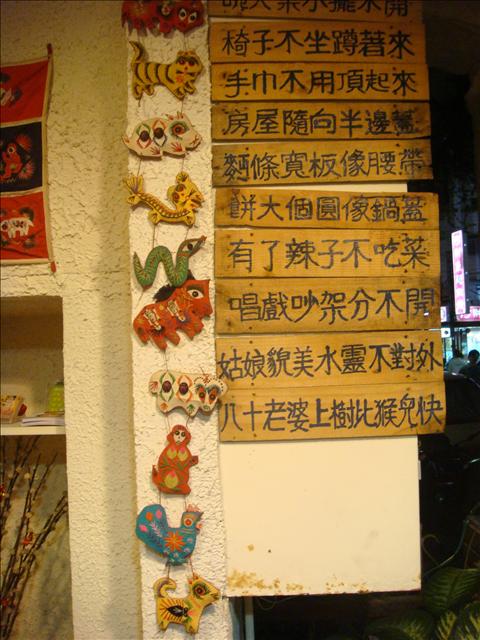 不開
椅子不坐蹲著來
手巾不用頂起來
房屋隨向半邊蓋
麵條寬板像腰帶
餅大個圓像鍋蓋
有了辣子不吃菜
唱戲吵架分不開
姑娘貌美水靈不對外
八十老婆上樹比猴兒快